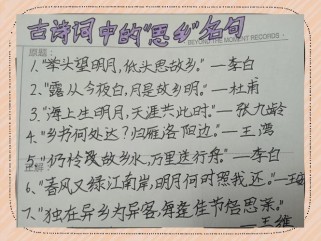 古诗词中的"思乡"名句
BEYOND THE MOMENT RECORDS
1."举头望明月,低头思故乡。"—李白
2."露从今夜白,月是故乡明。"—杜甫
3."海上生明月,天涯共此时。"—张九龄
4."乡书何处达?归雁洛阳边。"—王湾
5."仍怜故乡水,万里送行舟。"—李白
6."春风又绿江南岸,明月何时照我还。"—王安
7."独在异乡为异客,每逢佳节倍思亲。"
—王维